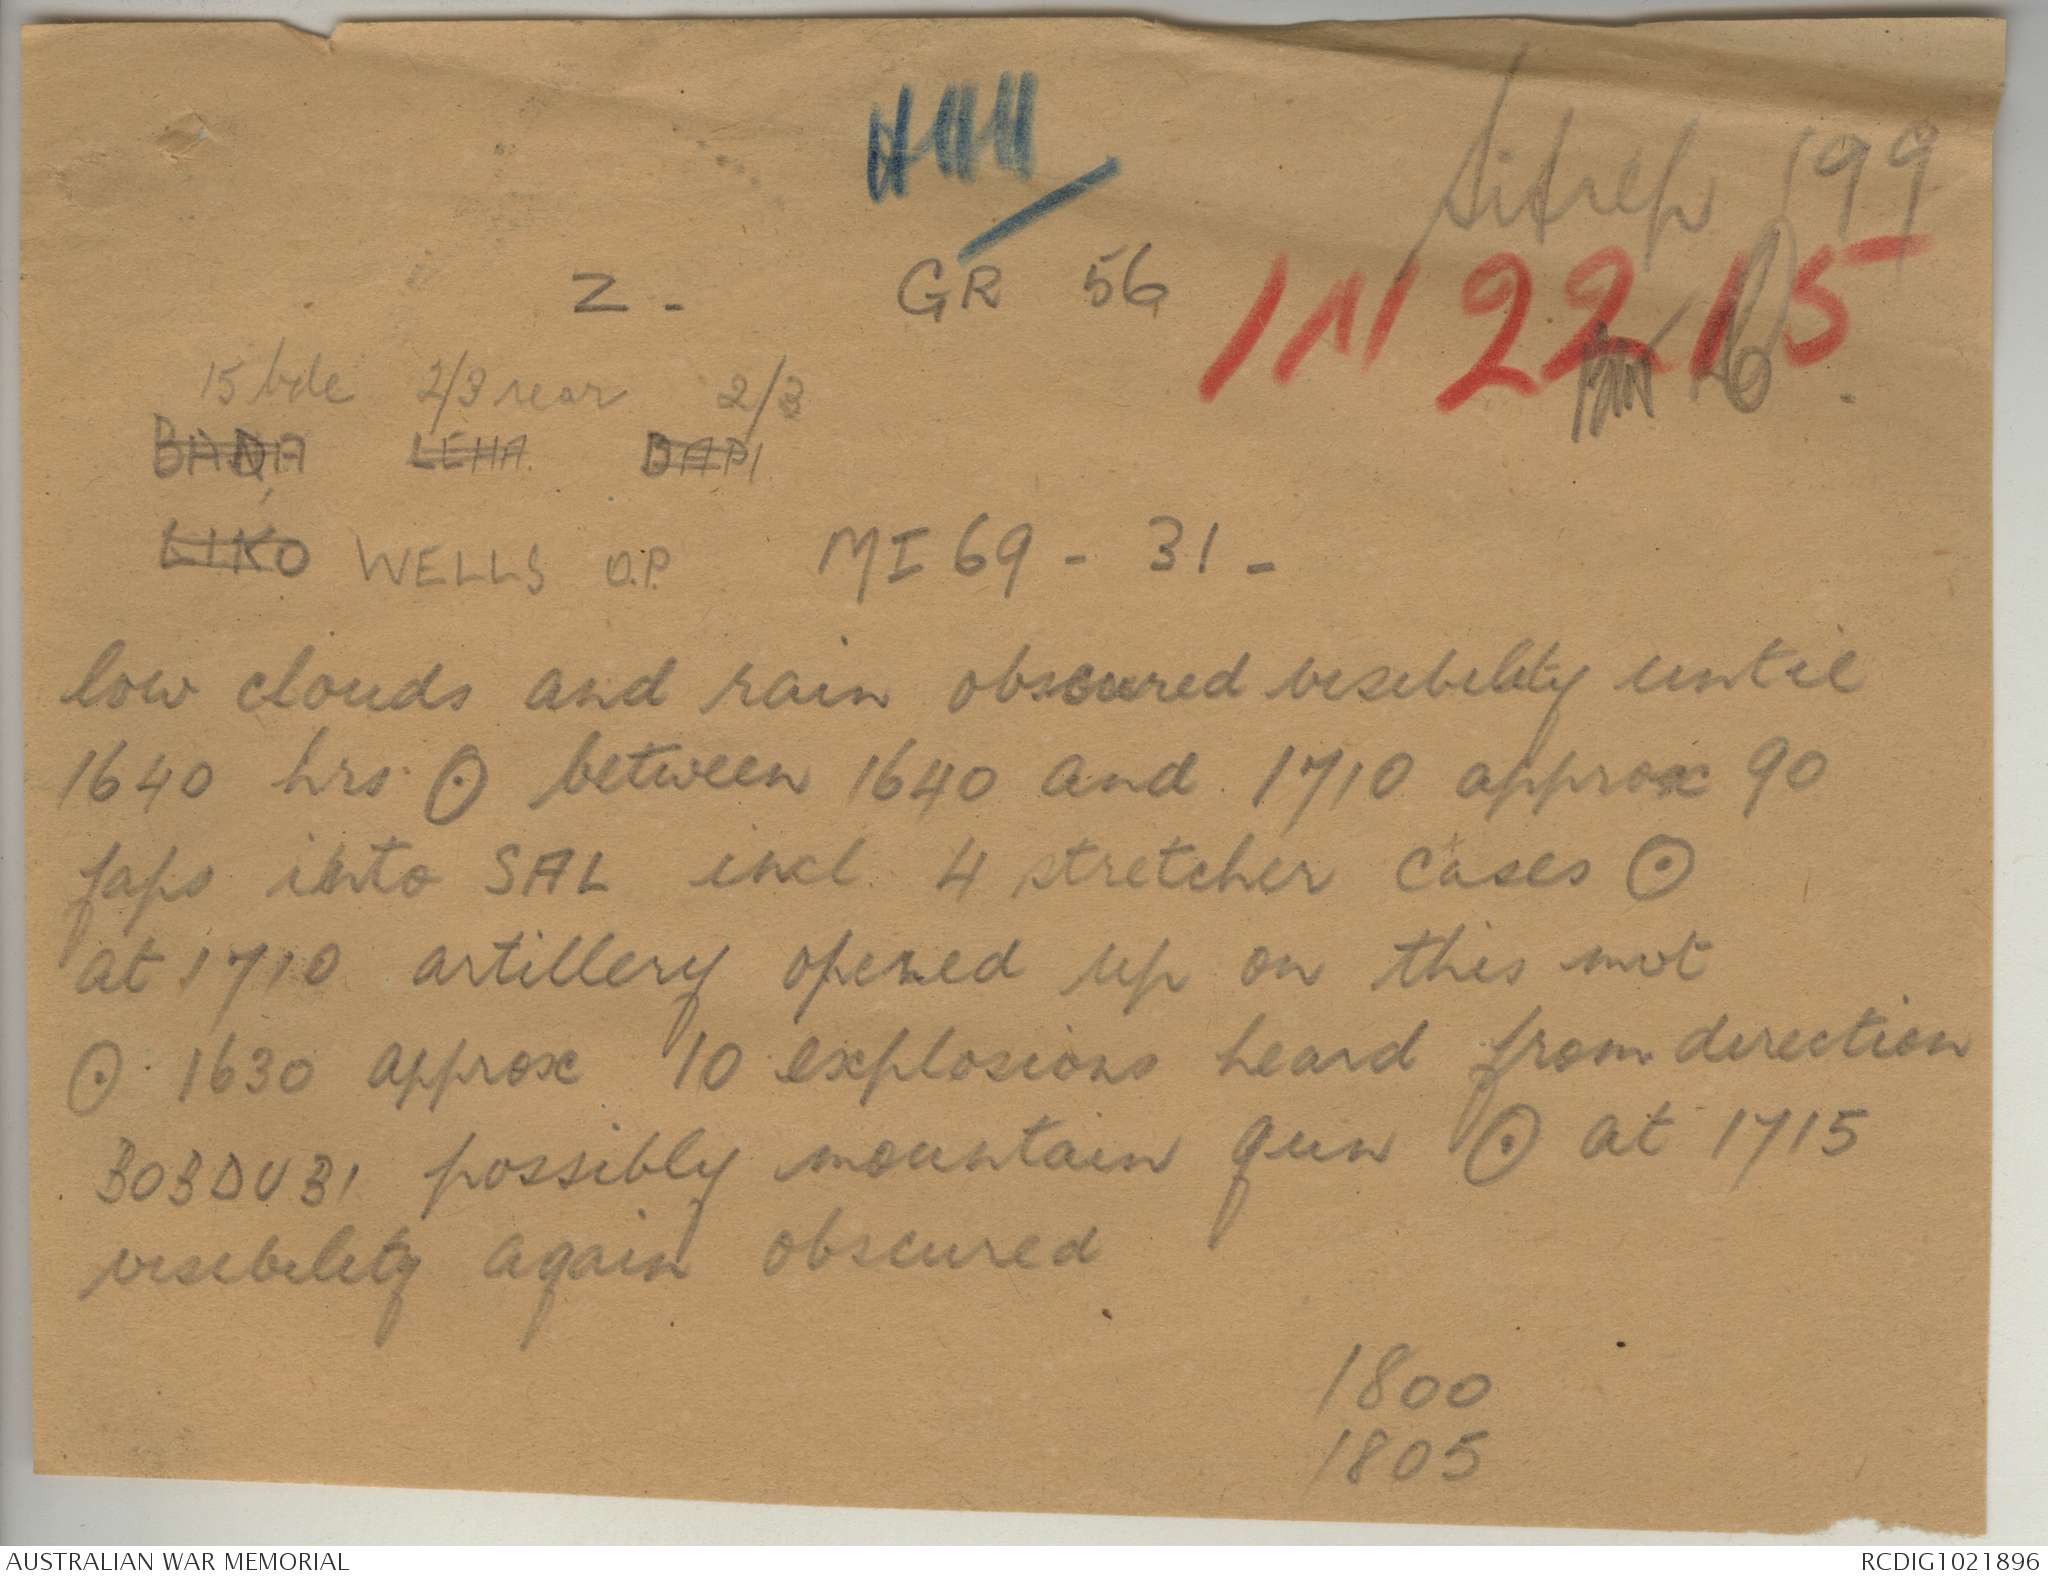 Sitrep 199
Z - GR 56
IN 2215
15 bde 2/3 rear 2/3
BADA LEHA DAPI
LIKO WELLS O.P. MI 69 - 31 -
low clouds and rain obscured visibility until
1640 hrs ⊙ between 1640 and 1710 approx 90
japs into SAL incl. 4 stretcher cases ⊙
at 1710 artillery opened up on this mvt
⊙ 1630 approx 10 explosions heard from direction
303DU31 possibly mountain gun ⊙ at 1715
visibility again obscured
1800
1805
AUSTRALIAN WAR MEMORIAL RCDIG1021896